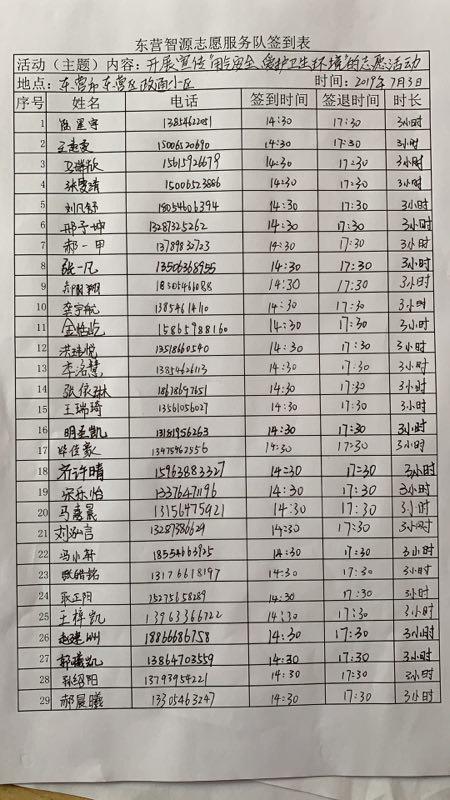 东营智源志愿服务队签到表
活动（主题）内容：开展宣传"用药安全 爱护卫生环境"的志愿活动
地点：东营市东营区政通小区 时间：2019年7月3日
序号 姓名 电话 签到时间 签退时间 时长
1 13854622051 14:30 17:30 3小时
2 15006520690 14:30 17:30 3小时
3 15615926679 14:30 17:30 3小时
4 15006523886 14:30 17:30 3小时
5 18054606394 14:30 17:30 3小时
6 邢予坤 13287325262 14:30 17:30 3小时
7 郝一甲 13789832723 14:30 17:30 3小时
8 张一凡 13506368955 14:30 17:30 3小时
9 18505461088 14:30 17:30 3小时
10 李宇航 13854614110 14:30 17:30 3小时
11 金怡屹 15865988160 14:30 17:30 3小时
12 洪瑞悦 13518660540 14:30 17:30 3小时
13 李洛慧 13854626113 14:30 17:30 3小时
14 张依琳 18678697651 14:30 17:30 3小时
15 王瑞琦 13561056027 14:30 17:30 3小时
16 明孟凯 13181956263 14:30 17:30 3小时
17 毕佳豪 13475462556 14:30 17:30 3小时
18 齐许晴 15963883327 14:30 17:30 3小时
19 宋乐怡 13376471196 14:30 17:30 3小时
20 马嘉晨 13156475921 14:30 17:30 3小时
21 刘泓言 13287386629 14:30 17:30 3小时
22 冯小轩 18554663925 14:30 17:30 3小时
23 张皓铭 13176618197 14:30 17:30 3小时
24 耿正阳 15275658289 14:30 17:30 3小时
25 王梓凯 13963366722 14:30 17:30 3小时
26 18866686758 14:30 17:30 3小时
27 郭曦凯 13864703559 14:30 17:30 3小时
28 韩绍阳 13793954221 14:30 17:30 3小时
29 郝晨曦 13305463247 14:30 17:30 3小时